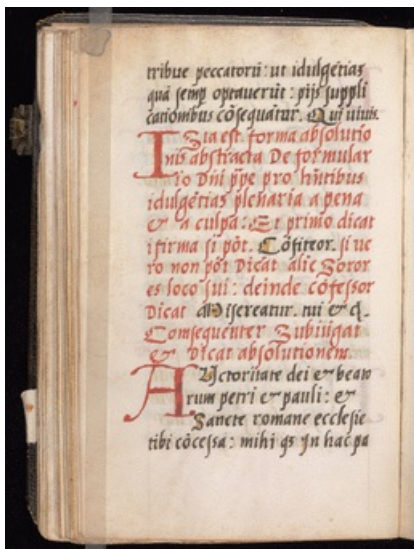 tribue peccatorũ: ut idulgẽtias
quã semp optaverũt: pijs suppli
cationibus cõsequãtur. Qui vivis.
Ista est forma absolutio
nis abstracta De formular
io Dñi ppe pro hñtibus
idulgẽtias plenaria a pena
& a culpa: Et primo dicat
ifirma si põt. Cõfiteor. si ve
ro non põt Dicat alie Soror
es loco sui: deinde cõfessor
Dicat Misereatur. tui & q̃.
Comsequenter Subiugat
& Dicat absolutionem.
Auctoritate dei & beato
rum petri & pauli: &
Sancte romane ecclesie
tibi cõcessa: mihi qs in hac pa